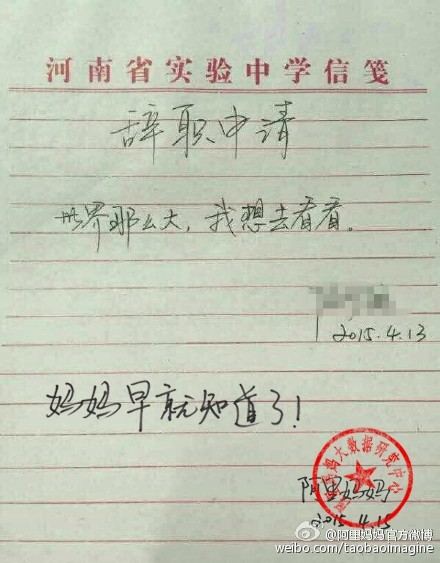 河南省实验中学信笺
辞职申请
世界那么大，我想去看看。
2015.4.13
妈妈早就知道了！
阿里妈妈大数据研究中心
阿里妈妈
2015.4.15
@阿里妈妈官方微博
weibo.com/taobaoimagine